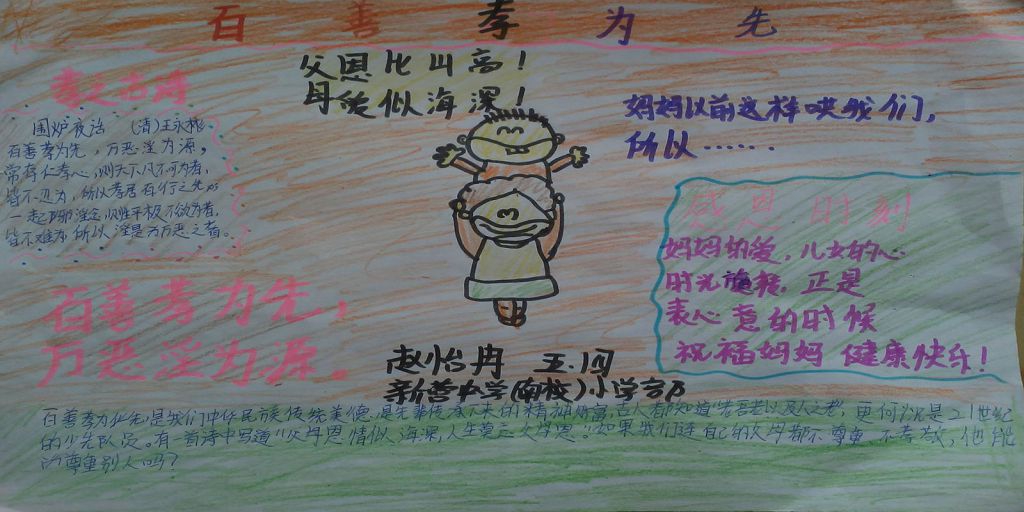 百善孝为先
父恩比山高！
母爱似海深！
孝之古诗
围炉夜话 (清)王永彬
百善孝为先，万恶淫为源，
常存仁孝心，则天下凡不可为者，
皆不忍为，所以孝居百行之先
一起邪淫念，则生平极不欲为者，
皆不难为 所以淫是为万恶之首。
妈妈以前这样哄我们，
所以……
感恩时刻
妈妈的爱，儿女的心
时光 正是
表心意的时候
祝福妈妈 健康快乐！
百善孝为先，
万恶淫为源。
赵怡冉 五.(1)
新誉中学(南校)小学部
百善孝为先，是我们中华民族传统美德，是先辈传承下来的精神财富，古人都知道老吾老以及人之老，更何况是21世纪
的少先队员。有一首诗中写道父母恩情似海深，人生莫忘父母恩。如果我们连自己的父母都不尊重、不孝敬，他能
的尊重别人吗？